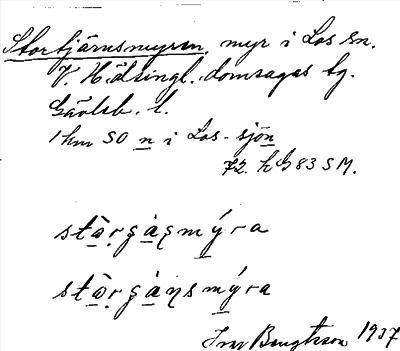 Stortjärnsmyren, myr i Los sn.
V. Hälsingl. domsagas tg.
Gävleb. l.
1 km SO n i Los-sjön
72. h G 83 S M.
stò̱rʂàʂmý̱ra
stò̱rʂàn̥smý̱ra
Ivar Bengtsson 1937